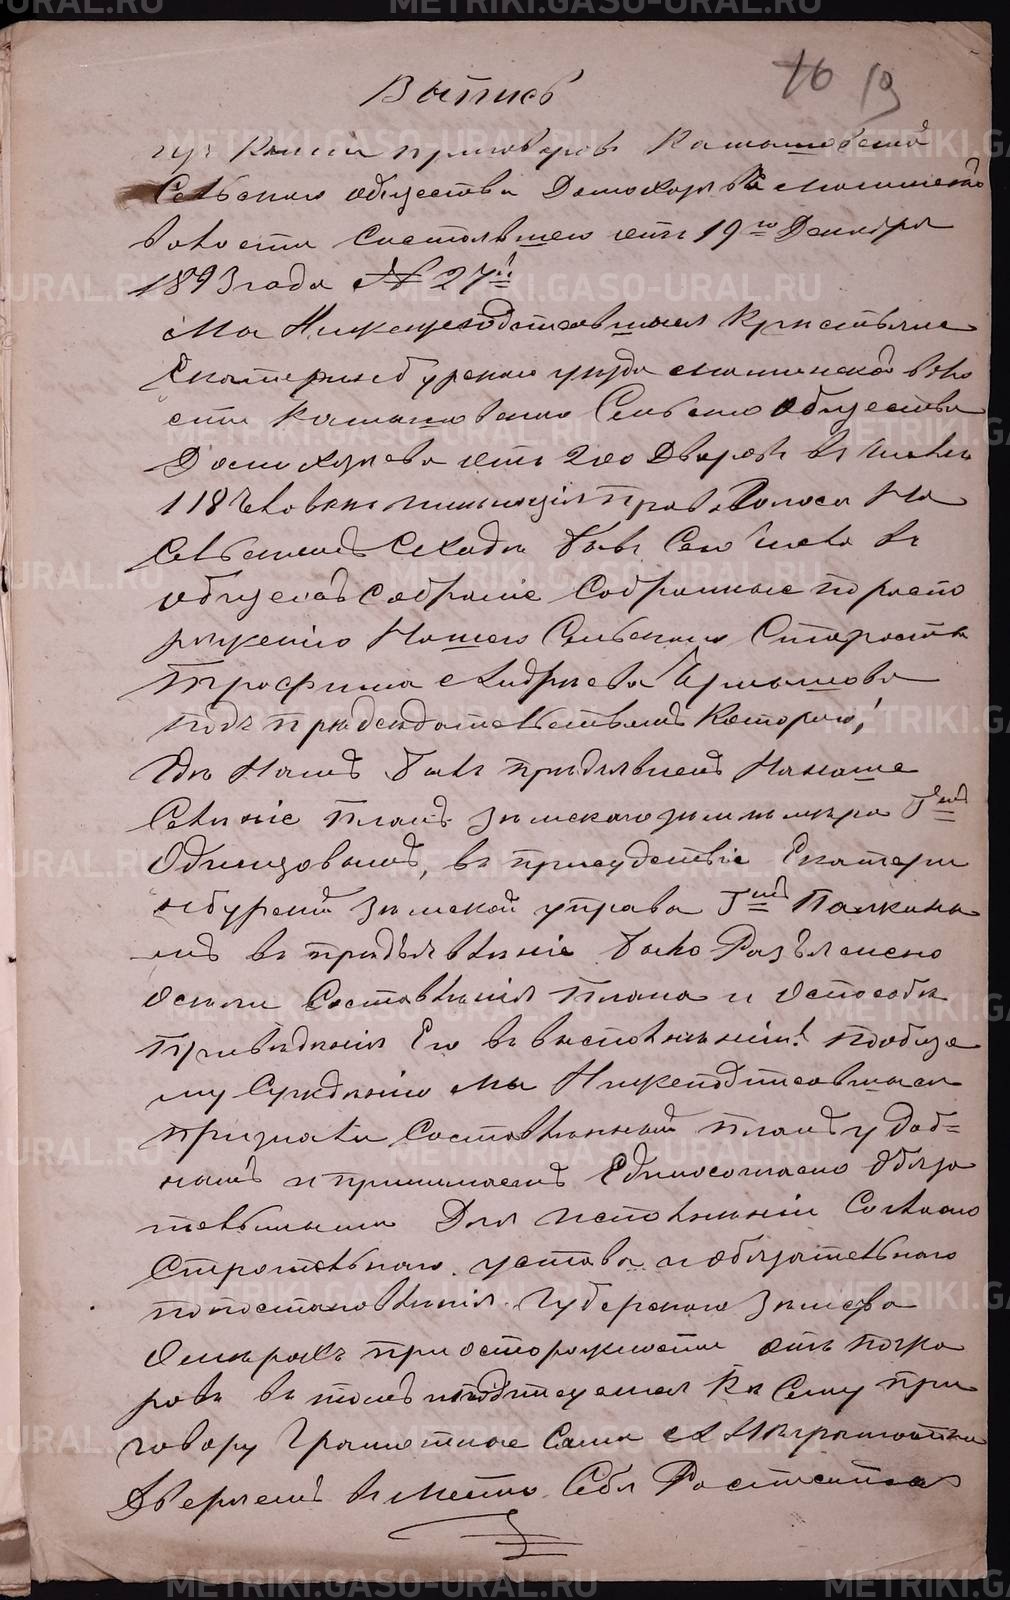 Выпись
изъ книги приговоровъ Камышевскаго
Сельскаго общества Домохозяева Маминской
волости состоявшего отъ 19го Декабря
1893 года № 27й
Мы Нижеподписавшиеся Крестьяне
Екатеринбургскаго уезда Маминской воло
сти Сельскаго Общества
Домохозяева отъ 200 Дворовъ въ числе
118 человекъ имеющия право Голоса На
Сельскомъ Сходе бывъ Сего числа въ
общемъ Собрание Собранные по распо
ряжению Нашего Сельскаго Старосты
Трофима Андреева
подъ председательствомъ Котораго!
Где Намъ былъ предъявленъ На наше
Селение планъ Земскаго землемера Гмъ
Одинцовымъ, въ присудствие Екатери
нбургской Земской управы Гмъ Палкины
мъ въ предъявление было Разъяснено
О составления плана и О способе
Приведения Его въ высполнении! по обще
му Суждению Мы Нижеподписавшиеся
признали Составленный планъ удоб=
нымъ и принимаемъ Единогласно Обяза
тельными Для исполнении Согласно
Строительнаго устава и обязательнаго
попостановления Губерскаго Земства
О мерахъ предосторожности отъ пожа
ровъ въ томъ и подписуемся Къ Сему при
говору Грамотные Сами А Неграмотны
Доверяемъ вместо Себя Росписатся
16 19
METRIKI.GASO-URAL.RU